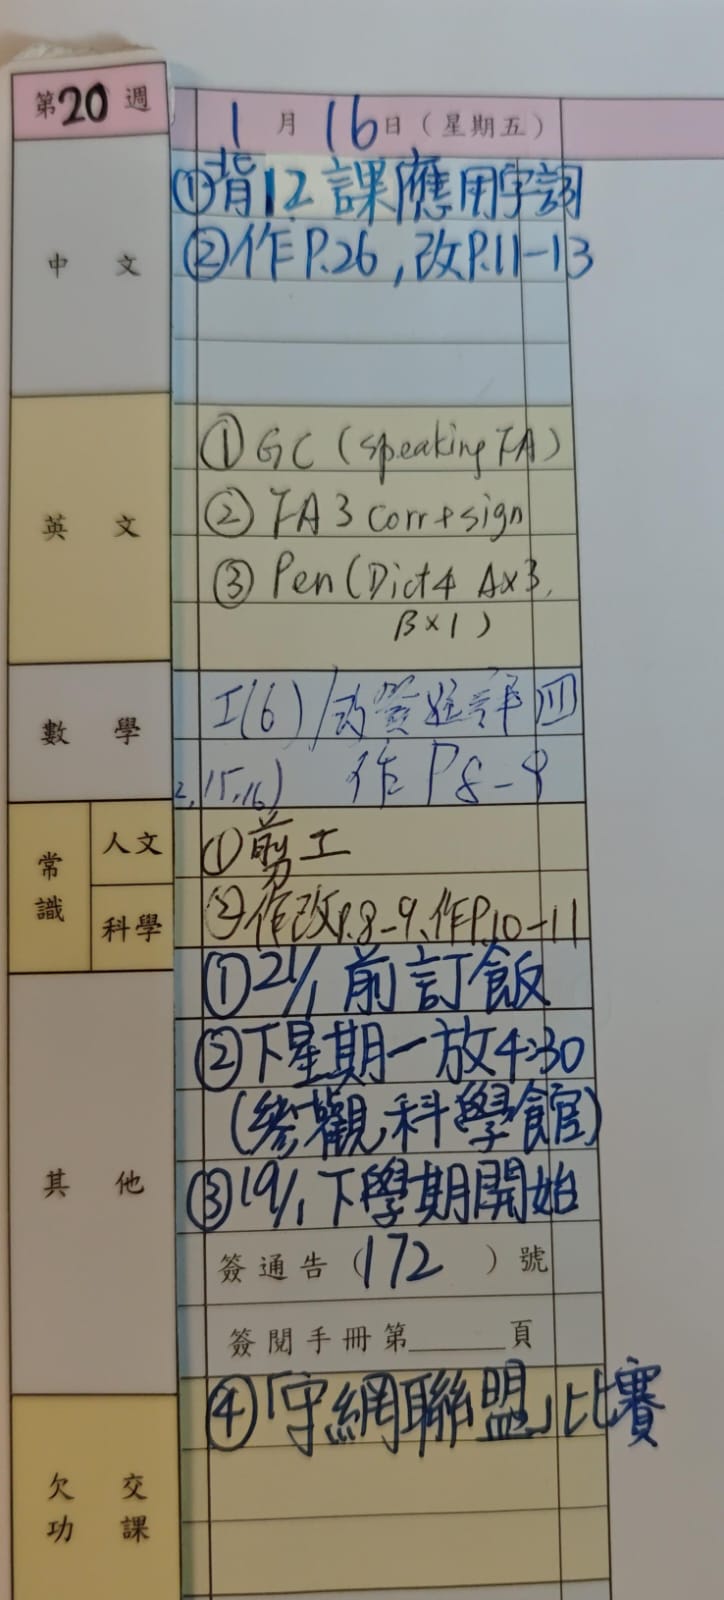 第20週
1月16日(星期五)
中文
①背12課應用字詞
②作P.26,改P.11-13
英文
①GC(speaking FA)
②FA3 corr+sign
③Pen(Dict4 A×3,
B×1)
數學
I(6)/改簽進評四
2,15,16) 作P8-9
常識
人文
①剪工
科學
②作改P.8-9、作P.10-11
其他
①21/1前訂飯
②下星期一放4:30
(參觀科學館)
③19/1下學期開始
簽通告(172)號
簽閱手冊第______頁
④「守網聯盟」比賽
欠交
功課